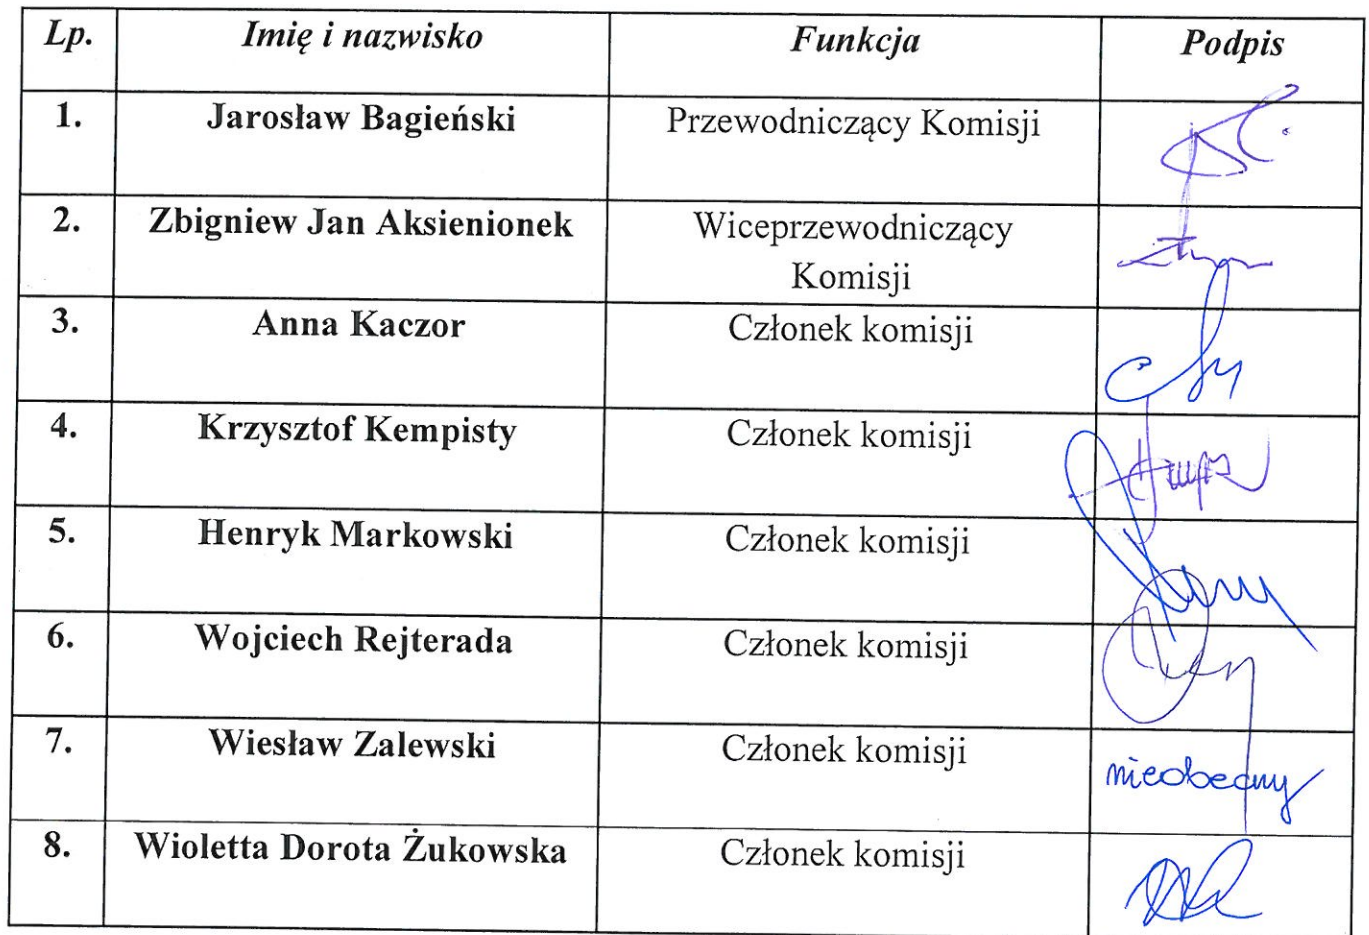 Lp. Imię i nazwisko Funkcja Podpis
1. Jarosław Bagieński Przewodniczący Komisji
2. Zbigniew Jan Aksienionek Wiceprzewodniczący
Komisji
3. Anna Kaczor Członek komisji
4. Krzysztof Kempisty Członek komisji
5. Henryk Markowski Członek komisji
6. Wojciech Rejterada Członek komisji
7. Wiesław Zalewski Członek komisji nieobecny
8. Wioletta Dorota Żukowska Członek komisji